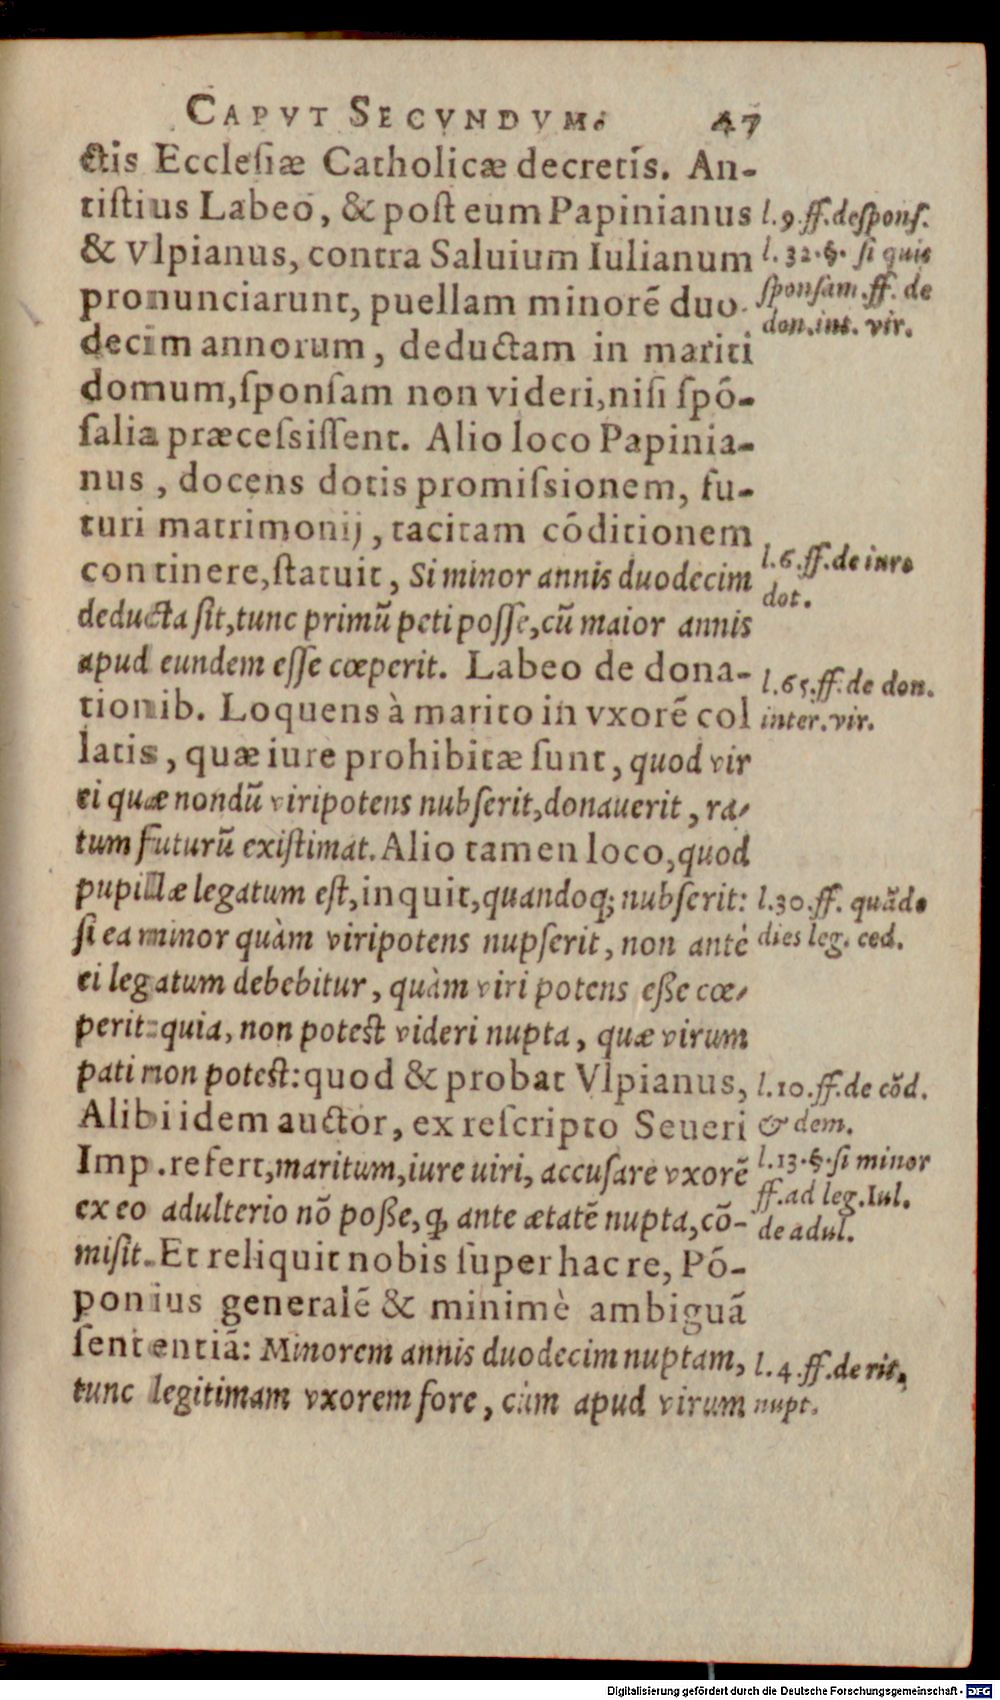 CAPVT SECVNDVM. 47
ctis Ecclesiæ Catholicæ decretis. An-
tistius Labeo, & post eum Papinianus
& Vlpianus, contra Saluium Iulianum
pronunciarunt, puellam minorē duo-
decim annorum, deductam in mariti
domum, sponsam non videri, nisi spō-
salia præcessissent. Alio loco Papinia-
nus, docens dotis promissionem, fu-
turi matrimonij, tacitam cōditionem
continere, statuit, Si minor annis duodecim
deducta sit, tunc primū peti posse, cū maior annis
apud eundem esse cœperit. Labeo de dona-
tionib. Loquens à marito in vxorē col
latis, quæ iure prohibitæ sunt, quod vir
ei quæ nondū viripotens nubserit, donauerit, ra-
tum futurū existimat. Alio tamen loco, quod
pupillæ legatum est, inquit, quandoq; nubserit:
si ea minor quàm viripotens nupserit, non antè
ei legatum debebitur, quàm viri potens esse cœ-
perit: quia, non potest videri nupta, quæ virum
pati non potest: quod & probat Vlpianus,
Alibi idem auctor, ex rescripto Seueri
Imp. refert, maritum, iure uiri, accusare vxorē
ex eo adulterio nō posse, q, ante ætatē nupta, cō-
misit. Et reliquit nobis super hac re, Pō-
ponius generalē & minimè ambiguā
sententiā: Minorem annis duodecim nuptam,
tunc legitimam vxorem fore, cùm apud virum
l. 9. ff. de spons.
l. 32. §. si quis
sponsam. ff. de
don. int. vir.
l. 6. ff. de iure
dot.
l. 65. ff. de don.
inter. vir.
l. 30. ff. quādo
dies leg. ced.
l. 10. ff. de cōd.
& dem.
l. 13. §. si minor
ff. ad leg. Iul.
de adul.
l. 4. ff. de rit.
nupt.
Digitalisierung gefördert durch die Deutsche Forschungsgemeinschaft - DFG